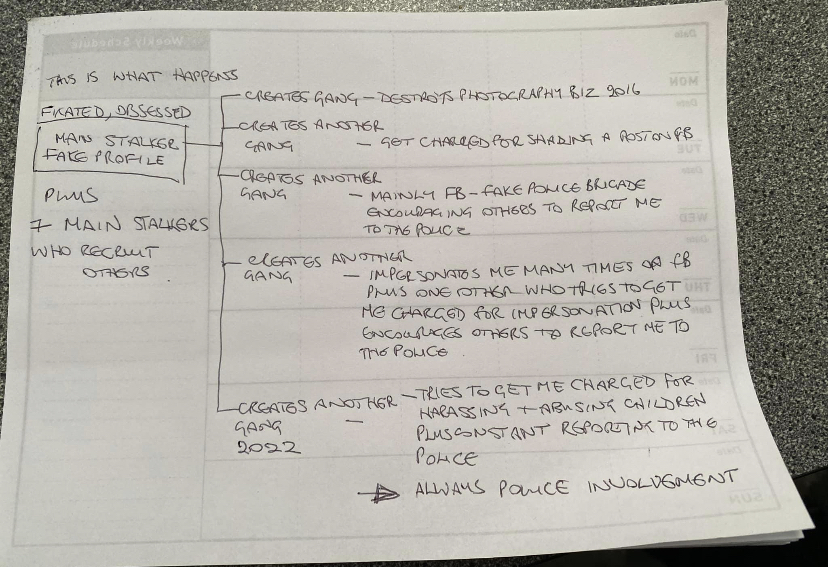 THIS IS WHAT HAPPENS
FIXATED, OBSESSED
MAIN STALKER
FAKE PROFILE
PLUS
7 MAIN STALKERS
WHO RECRUIT
OTHERS
CREATES GANG - DESTROYS PHOTOGRAPHY BIZ 2016
CREATES ANOTHER
GANG - GET CHARGED FOR SHARING A POST ON FB
CREATES ANOTHER
GANG - MAINLY FB - FAKE POLICE BRIGADE
ENCOURAGING OTHERS TO REPORT ME
TO THE POLICE
CREATES ANOTHER
GANG - IMPERSONATES ME MANY TIMES ON FB
PLUS ONE OTHER WHO TRIES TO GET
ME CHARGED FOR IMPERSONATION PLUS
ENCOURAGES OTHERS TO REPORT ME TO
THE POLICE.
CREATES ANOTHER - TRIES TO GET ME CHARGED FOR
GANG - HARASSING + ABUSING CHILDREN
2022 PLUS CONSTANT REPORTING TO THE
POLICE
→ ALWAYS POLICE INVOLVEMENT
Weekly Schedule
Date
MON
Date
TUE
Date
WED
Date
THU
Date
FRI
Date
SAT
Date
SUN